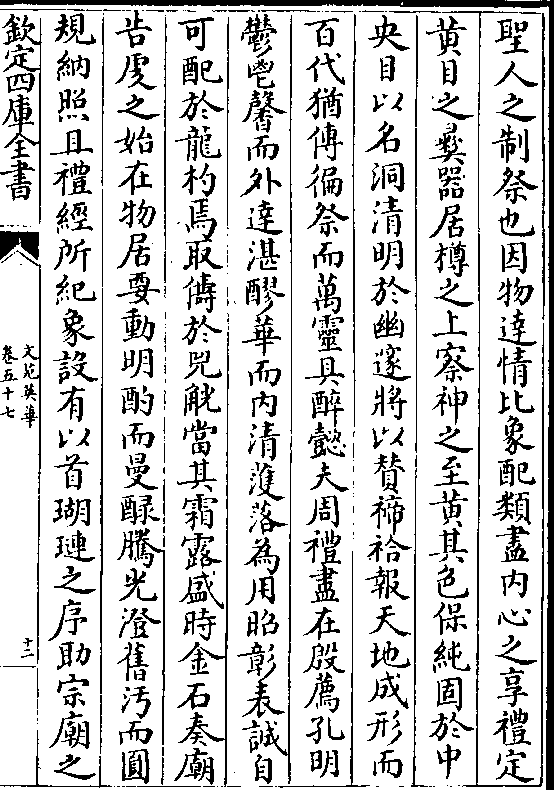 聖人之制祭也因物達情比象配類盡内心之享禮定
黄目之彛器居樽之上察神之至黄其色保純固於中
央目以名洞清明於幽邃將以賛禘祫報天地成形而
百代猶傳徧祭而萬靈具醉懿夫周禮盡在殷薦孔明
鬱鬯馨而外達湛醪華而内清濩落為用昭彰表誠自
可配於龍杓焉取儔於兕觥當其霜露盛時金石奏廟
告䖍之始在物居要動明酌而曼醁騰光澄舊汚而圓
規納照且禮經所紀象設有以首瑚璉之序助宗廟之
欽定四庫全書
文苑英華
卷五十七
十二